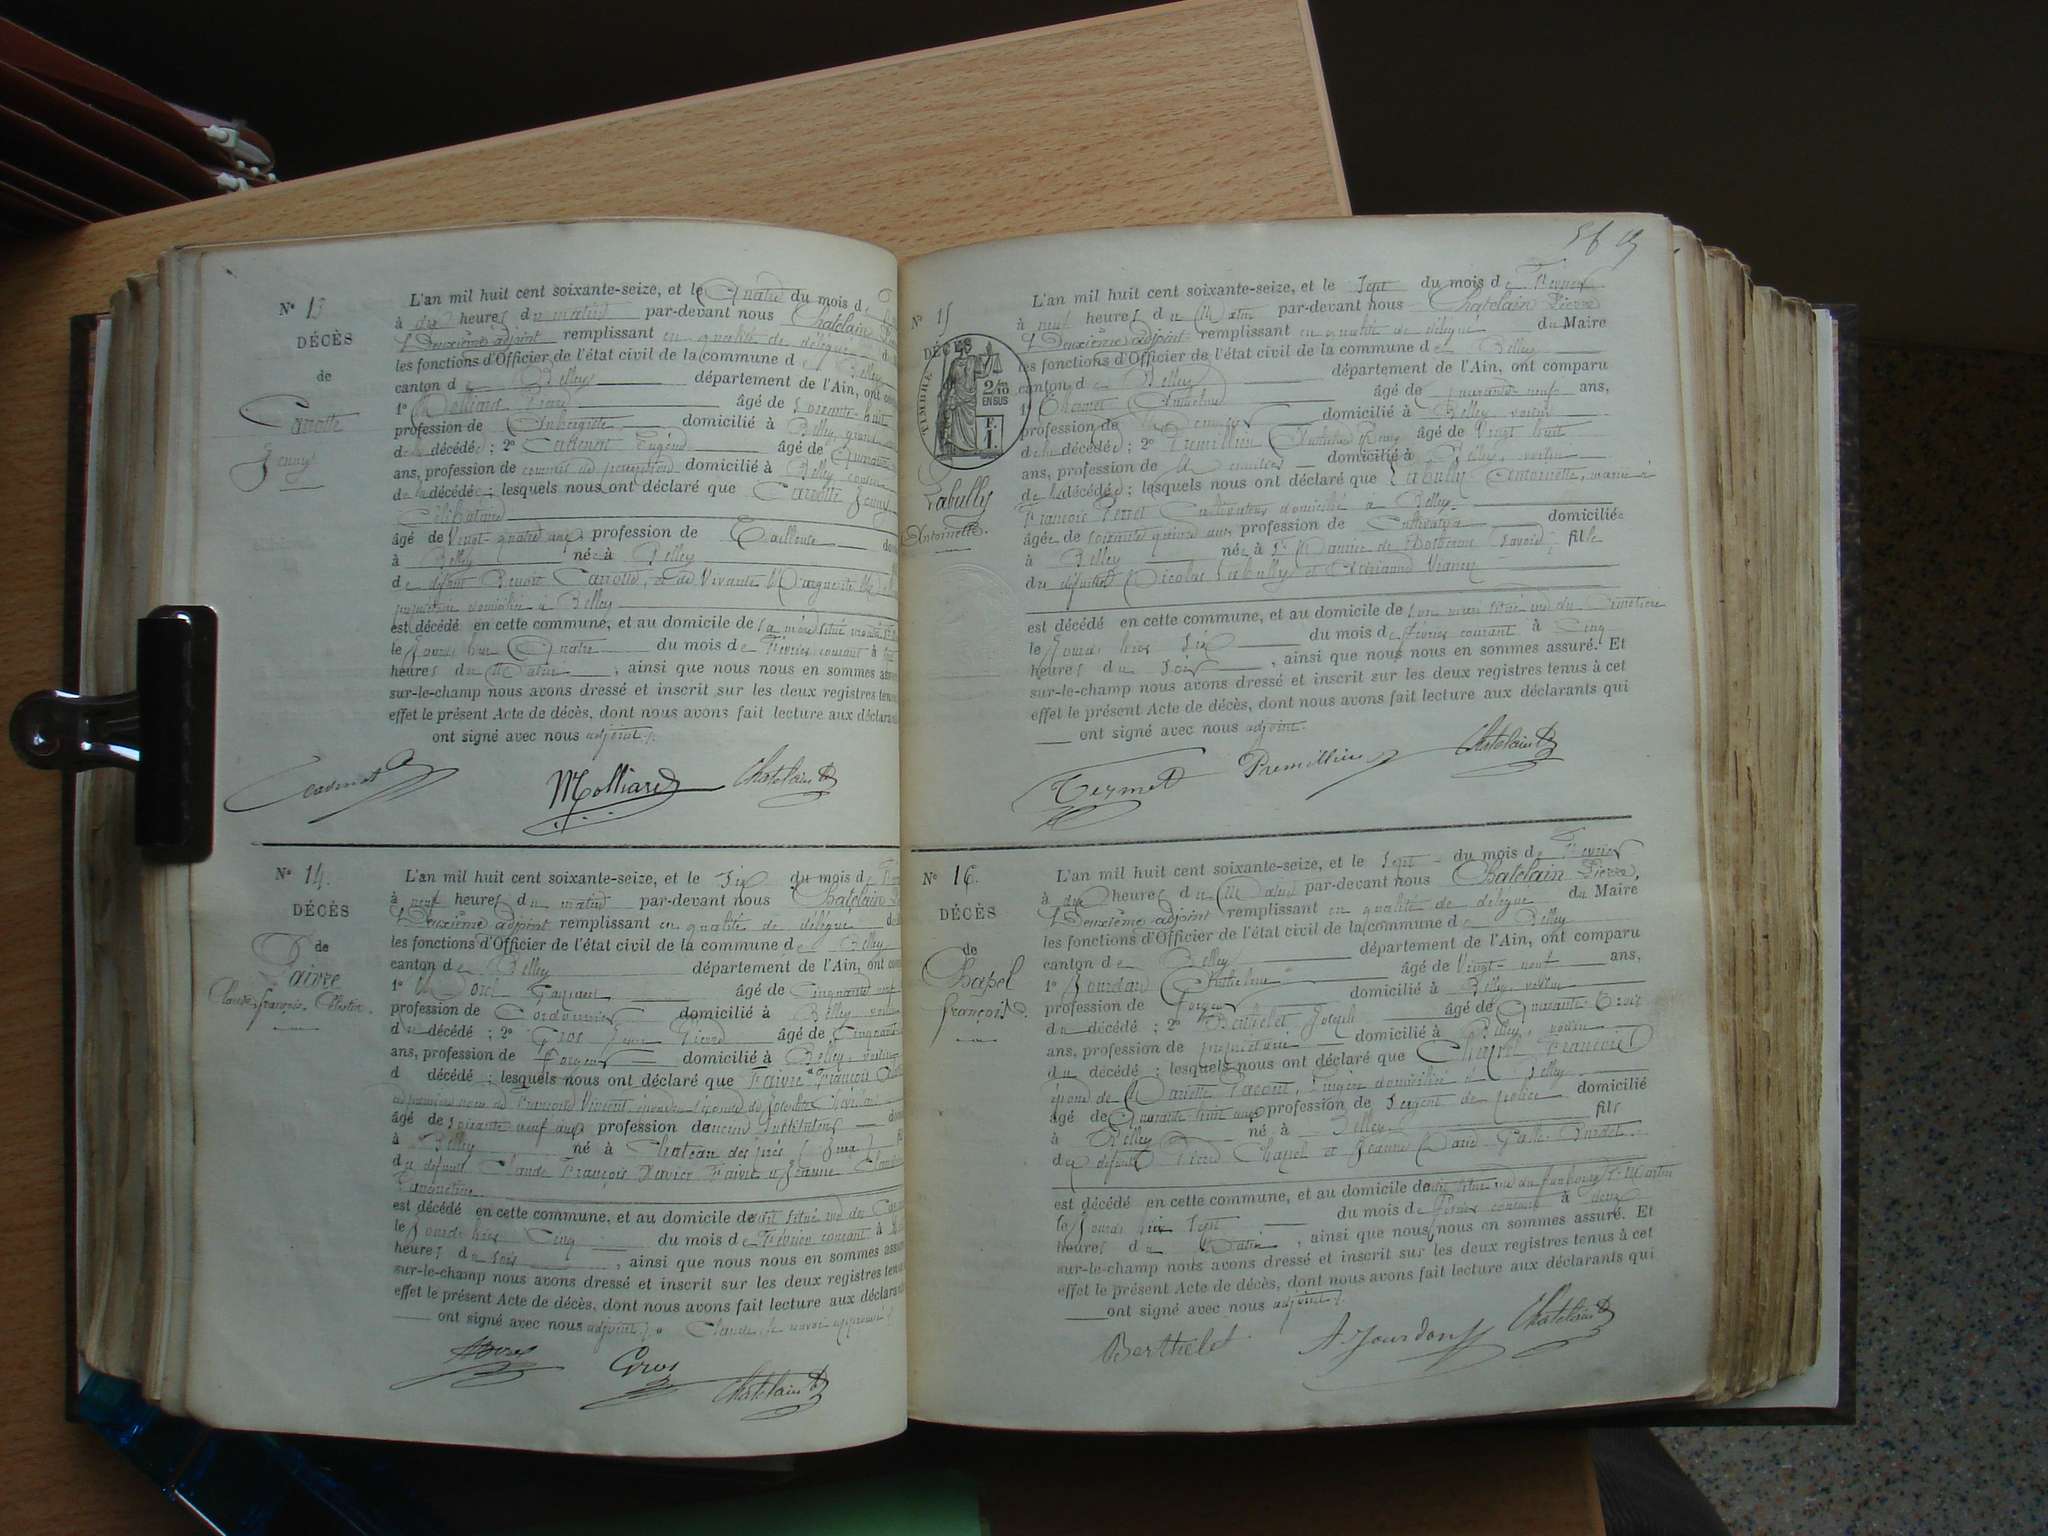 Nº 13
DÉCÈS
de
Carotte
Jenny
L'an mil huit cent soixante-seize, et le Quatre du mois d
à dix heures du matin par-devant nous Chatelain
Deuxième adjoint remplissant en qualité de délégué
les fonctions d'Officier de l'état civil de la commune de Belley
canton de Belley département de l'Ain, ont
1º Molliard âgé de soixante-huit
profession de Aubergiste domicilié à Belley, grand
de la décédée; 2º Cadenat Eugène âgé de Quarante
ans, profession de commis de domicilié à Belley cousin
de la décédée; lesquels nous ont déclaré que Carotte Jenny
Célibataire
âgée de Vingt-quatre ans, profession de Tailleuse
à Belley née à Belley
de défunt Benoit Carotte, et de Vivante Marguerite
domiciliée à Belley
est décédé en cette commune, et au domicile de sa mère situé
le Jourd'hui Quatre du mois de Février courant à
heures du Matin, ainsi que nous nous en sommes
sur-le-champ nous avons dressé et inscrit sur les deux registres
effet le présent Acte de décès, dont nous avons fait lecture aux
ont signé avec nous adjoint.
Cadenat Molliard Chatelain
Nº 14.
DÉCÈS
de
Faivre
Claude, françois,
L'an mil huit cent soixante-seize, et le Six du mois d
à neuf heures du matin par-devant nous Chatelain
Deuxième adjoint remplissant en qualité de délégué
les fonctions d'Officier de l'état civil de la commune de Belley
canton de Belley département de l'Ain, ont
1º âgé de Cinquante neuf
profession de Cordonnier domicilié à Belley
du décédé; 2º Gros Jean Pierre âgé de Cinquante
ans, profession de Forgeur domicilié à Belley, voisin
d décédé; lesquels nous ont déclaré que Faivre François
âgé de soixante neuf ans, profession d'ancien Instituteur
à Belley né à Chateau des prés (Jura)
des défunts Claude François Xavier Faivre et Jeanne
est décédé en cette commune, et au domicile de situé rue
le Jourd'hier Cinq du mois de Février courant à
heures du soir, ainsi que nous nous en sommes
sur-le-champ nous avons dressé et inscrit sur les deux registres
effet le présent Acte de décès, dont nous avons fait lecture aux
ont signé avec nous adjoint. Claude,
Gros Chatelain
Nº 15
DÉCÈS
TIMBRE
2/10
EN SUS
F.
1.
Labully
Antoinette.
L'an mil huit cent soixante-seize, et le Sept du mois de Février
à neuf heures du Matin par-devant nous Chatelain Pierre
Deuxième adjoint remplissant en qualité de délégué du Maire
les fonctions d'Officier de l'état civil de la commune de Belley
canton de Belley département de l'Ain, ont comparu
1º Anthelme âgé de quarante-neuf ans,
profession de domicilié à Belley voisin
de la décédée; 2º Premillieu Anthelme âgé de Vingt huit
ans, profession de domicilié à Belley, voisin
de la décédée; lesquels nous ont déclaré que Labully Antoinette, mariée à
François Perret Cultivateur domicilié à Belley
âgée de soixante quinze ans, profession de Cultivatrice domiciliée
à Belley née à Savoie; fille
des défunts Nicolas Labully et
est décédé en cette commune, et au domicile de son mari situé rue du Cimetière
le Jourd'hier Six du mois de Février courant à Cinq
heures du Soir, ainsi que nous nous en sommes assuré. Et
sur-le-champ nous avons dressé et inscrit sur les deux registres tenus à cet
effet le présent Acte de décès, dont nous avons fait lecture aux déclarants qui
ont signé avec nous adjoint.
Premillieu Chatelain
Nº 16.
DÉCÈS
de
Chapel
françois.
L'an mil huit cent soixante-seize, et le Sept du mois de Février
à dix heures du Matin par-devant nous Chatelain Pierre,
Deuxième adjoint remplissant en qualité de délégué du Maire
les fonctions d'Officier de l'état civil de la commune de Belley
canton de Belley département de l'Ain, ont comparu
1º Jourdan Anthelme âgé de Vingt-neuf ans,
profession de Forgeur domicilié à Belley, voisin
du décédé; 2º Berthelet Joseph âgé de Quarante-trois
ans, profession de propriétaire domicilié à Belley, voisin
du décédé; lesquels nous ont déclaré que Chapel François
époux de Mariette domiciliée à Belley
âgé de Quarante huit ans, profession de Sergent de police domicilié
à Belley né à Belley fils
des défunts Pierre Chapel et Jeanne Marie
est décédé en cette commune, et au domicile de situé rue du faubourg St Martin
le Jourd'hui Sept du mois de Février courant à deux
heures du Matin, ainsi que nous nous en sommes assuré. Et
sur-le-champ nous avons dressé et inscrit sur les deux registres tenus à cet
effet le présent Acte de décès, dont nous avons fait lecture aux déclarants qui
ont signé avec nous adjoint.
Berthelet A. Jourdan Chatelain